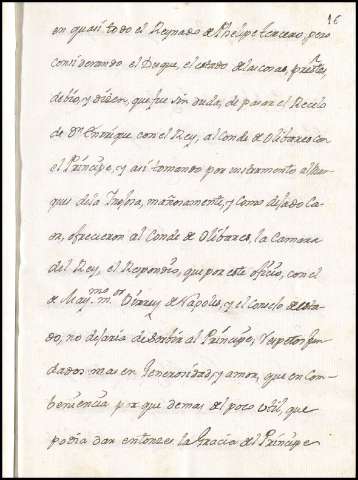 16
en quasi todo el Reynado de Phelipe tercero, pero
considerando el Duque, el estado de las cosas, presentes,
debio, y dizen, que fue sin duda, de pasar el Recelo
de Dn Enrrique con el Rey, al Conde de Olibares con
el Principe, y asi tomando por instrumento al Mar-
ques de la Inojosa, mañosamente, y como dejado ca-
er, ofrecieron al Conde de Olibares, la Camara
del Rey, el Respondio, que por este oficio, con el
de Maymo mor Virrey de Napoles, y el Consejo de esta-
do, no dejaria de serbir al Principe, Respetos fun-
dados mas en Generosidad, y amor, que en Com-
beniencia por que demas del poco util, que
podia dar entonzes la Gracia del Principe